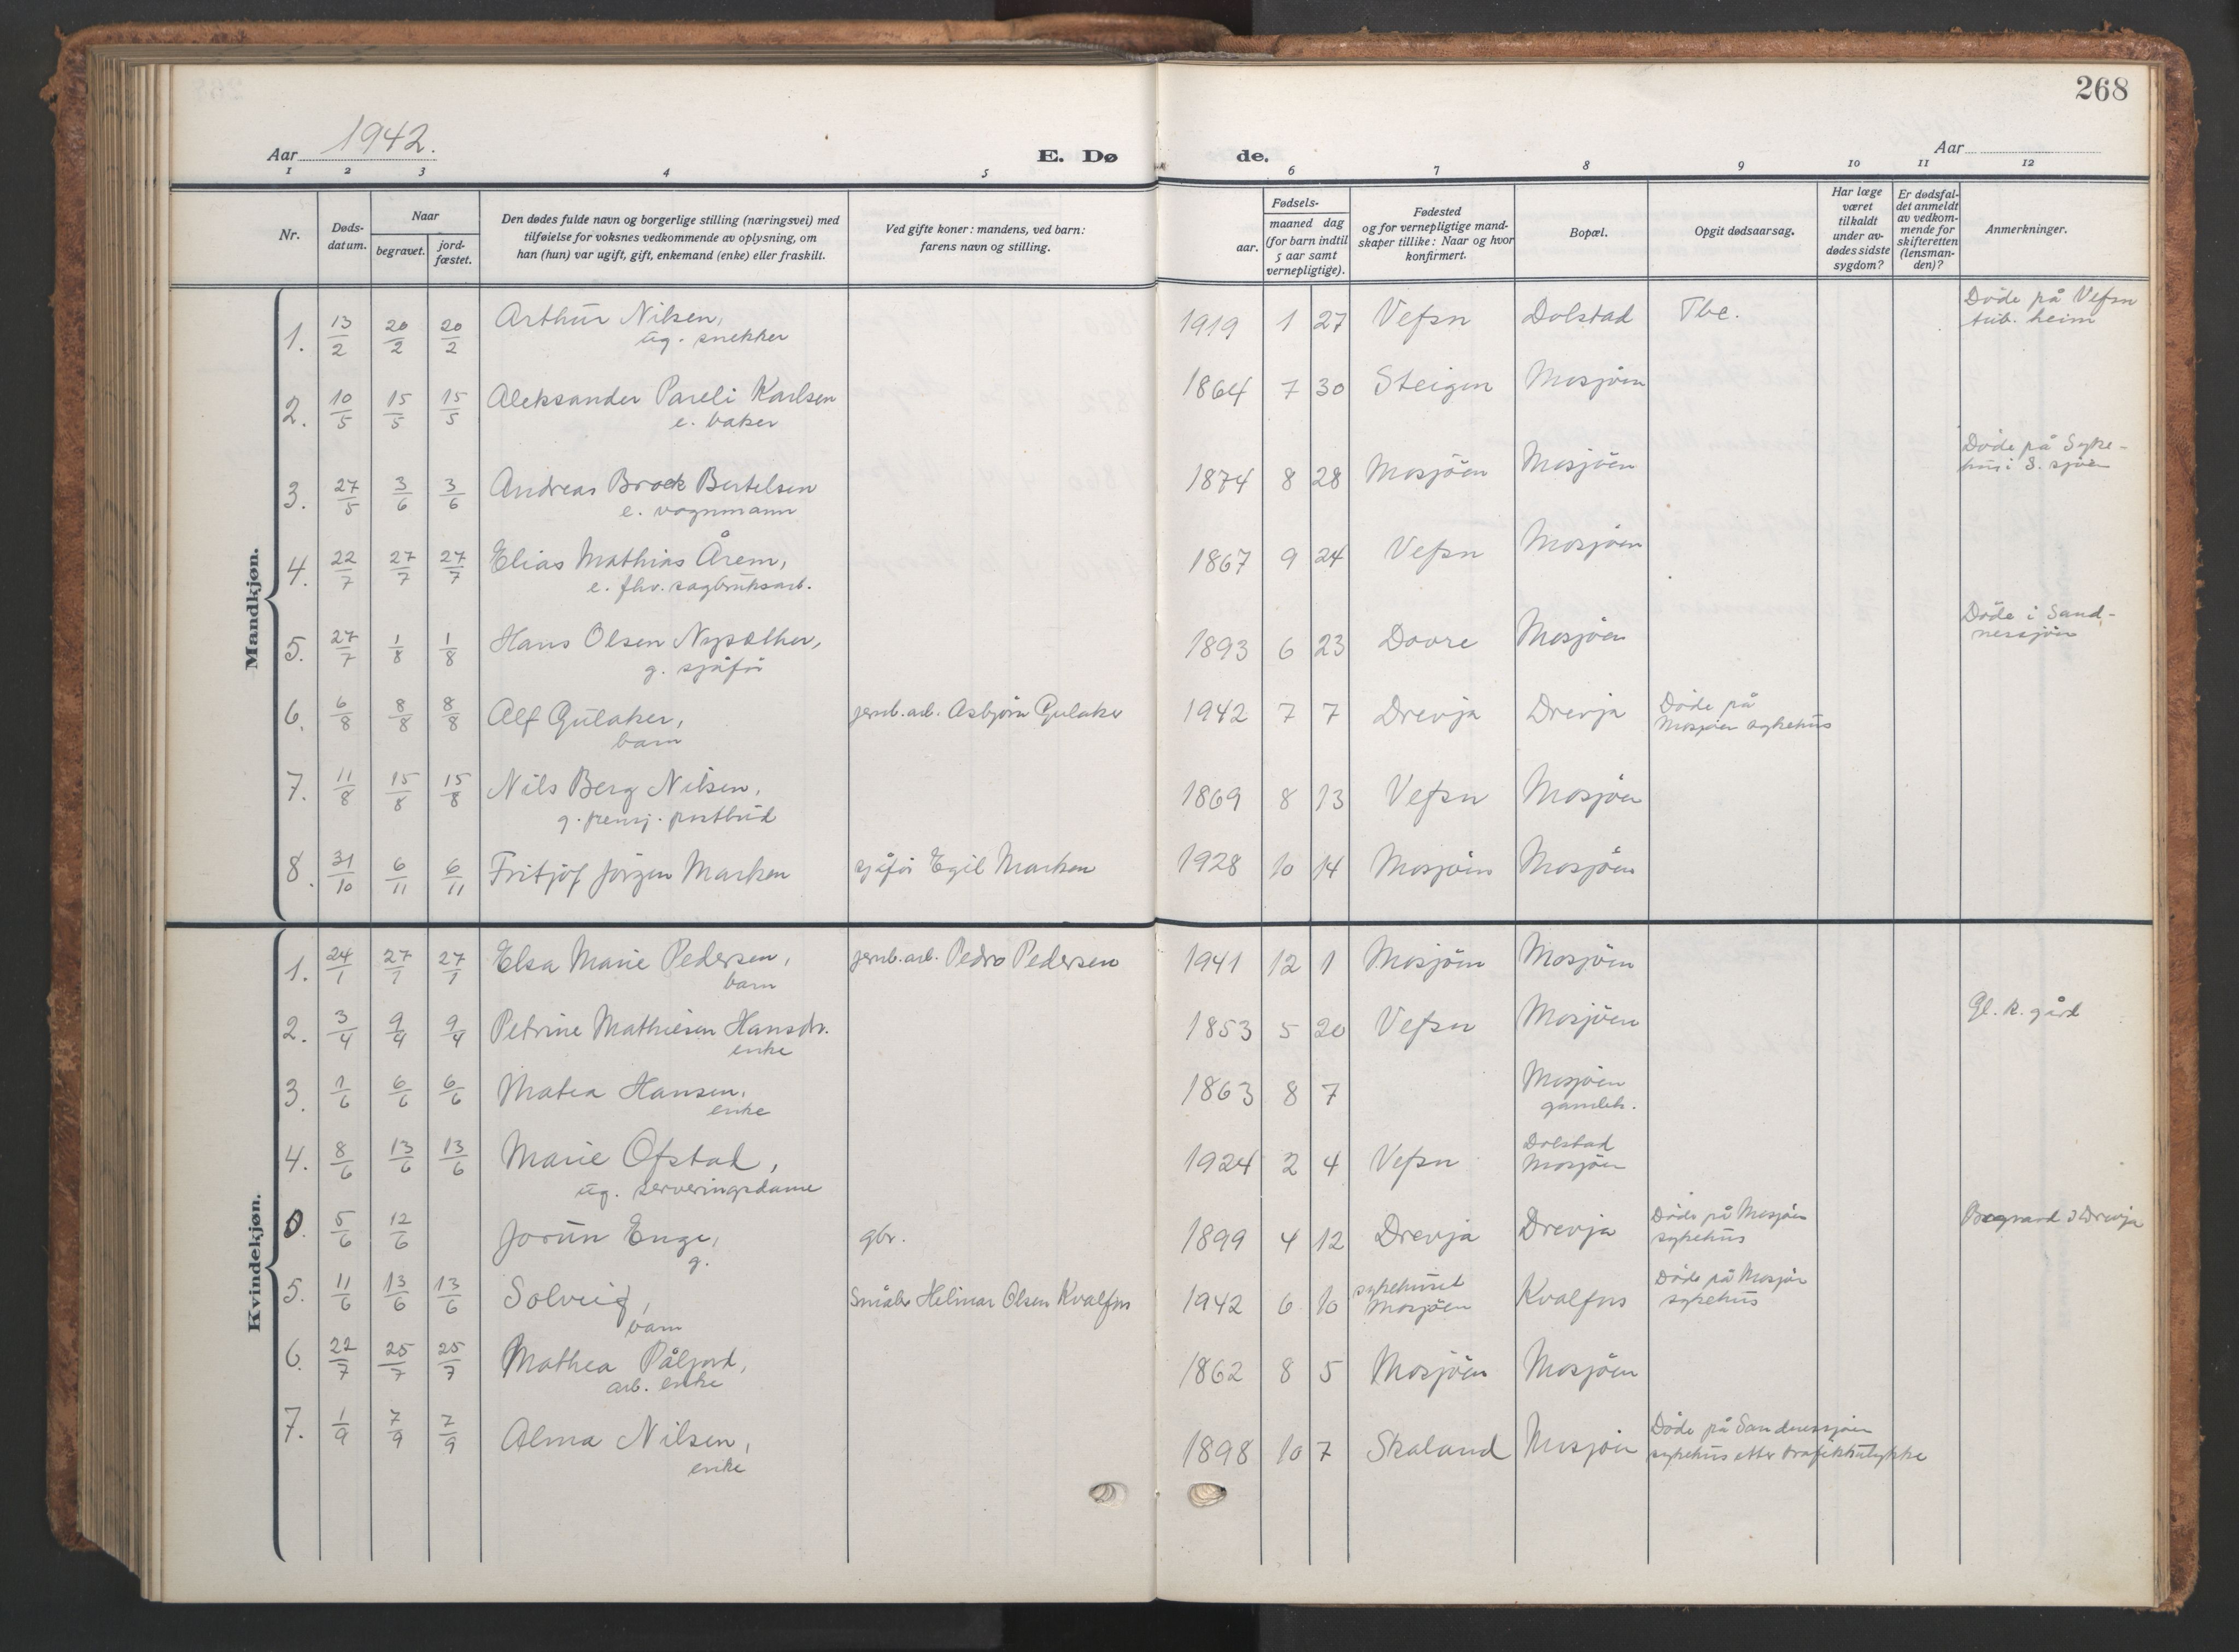 268
Aar 1942.
E. Dø
de.
Aar
1 2 3 4 5 6 7 8 9 10 11 12
Nr.
Døds-
datum.
Naar
begravet.
jord-
fæstet.
Den dødes fulde navn og borgerlige stilling (næringsvei) med
tilføielse for voksnes vedkommende av oplysning, om
han (hun) var ugift, gift, enkemand (enke) eller fraskilt.
Ved gifte koner: mandens, ved barn:
farens navn og stilling.
Fødsels-
aar.
maaned dag
(for barn indtil
5 aar samt
vernepligtige).
Fødested
og for vernepligtige mand-
skaper tillike: Naar og hvor
konfirmert.
Bopæl.
Opgit dødsaarsag.
Har læge
været
tilkaldt
under av-
dødes sidste
sygdom?
Er dødsfal-
det anmeldt
av vedkom-
mende for
skifteretten
(lensman-
den)?
Anmerkninger.
Mandkjøn.
1. 13/2 20/2 20/2 Arthur Nilsen, 1919 1 27 Vefsn Dolstad Tbc. Døde på Vefsn
ug. snekker tub. heim
2. 10/5 15/5 15/5 Aleksander Pareli Karlsen 1864 7 30 Steigen Mosjöen
e. baker
3. 27/5 3/6 3/6 Andreas Brock Bertelsen 1874 8 28 Mosjöen Mosjöen Døde på Syke-
e. vognmann hus i S. sjöen
4. 22/7 27/7 27/7 Elias Mathias Årem, 1867 9 24 Vefsn Mosjöen
e. fhv. sagbruksarb.
5. 27/7 1/8 1/8 Hans Olsen Nysæther, 1893 6 23 Dovre Mosjöen Döde i Sand-
g. sjåför nessjöen
6. 6/8 8/8 8/8 Alf Gulaker, jernb.arb. Asbjörn Gulaker 1942 7 7 Drevja Drevja Döde på
barn Mosjöen sykehus
7. 11/8 15/8 15/8 Nils Berg Nilsen, 1869 8 13 Vefsn Mosjöen
g. pensj. postbud
8. 31/10 6/11 6/11 Fritjof Jörgen Marken sjåför Egil Marken 1928 10 14 Mosjöen Mosjöen
Kvindekjøn.
1. 24/1 27/1 27/1 Elsa Marie Pedersen, jernb.arb. Pedro Pedersen 1941 12 1 Mosjöen Mosjöen
barn
2. 3/4 9/4 9/4 Petrine Mathiesen Hansdr. 1853 5 20 Vefsn Mosjöen Gl. k. gård
enke
3. 1/6 6/6 6/6 Matea Hansen, 1863 8 7 Mosjöen
enke gamleh.
4. 8/6 13/6 13/6 Marie Ofstad, 1924 2 4 Vefsn Dolstad
Mosjöen
ug. serveringsdame
0. 5/6 12/6 Jorun Enge, gbr. 1899 4 12 Drevja Drevja Döde på Mosjöen Begravd i Drevja
g. sykehus
5. 11/6 13/6 13/6 Solveig, Småbr Helmar Olsen Kvalfors 1942 6 10 sykehuset Kvalfors Döde på Mosjöen
barn Mosjöen sykehus
6. 22/7 25/7 25/7 Mathea Påljord, 1862 8 5 Mosjöen Mosjöen
arb. enke
7. 1/9 7/9 7/9 Alma Nilsen, 1898 10 7 Skaland Mosjöen Döde på Sandnessjöen
enke sykehus etter trafikkulykke